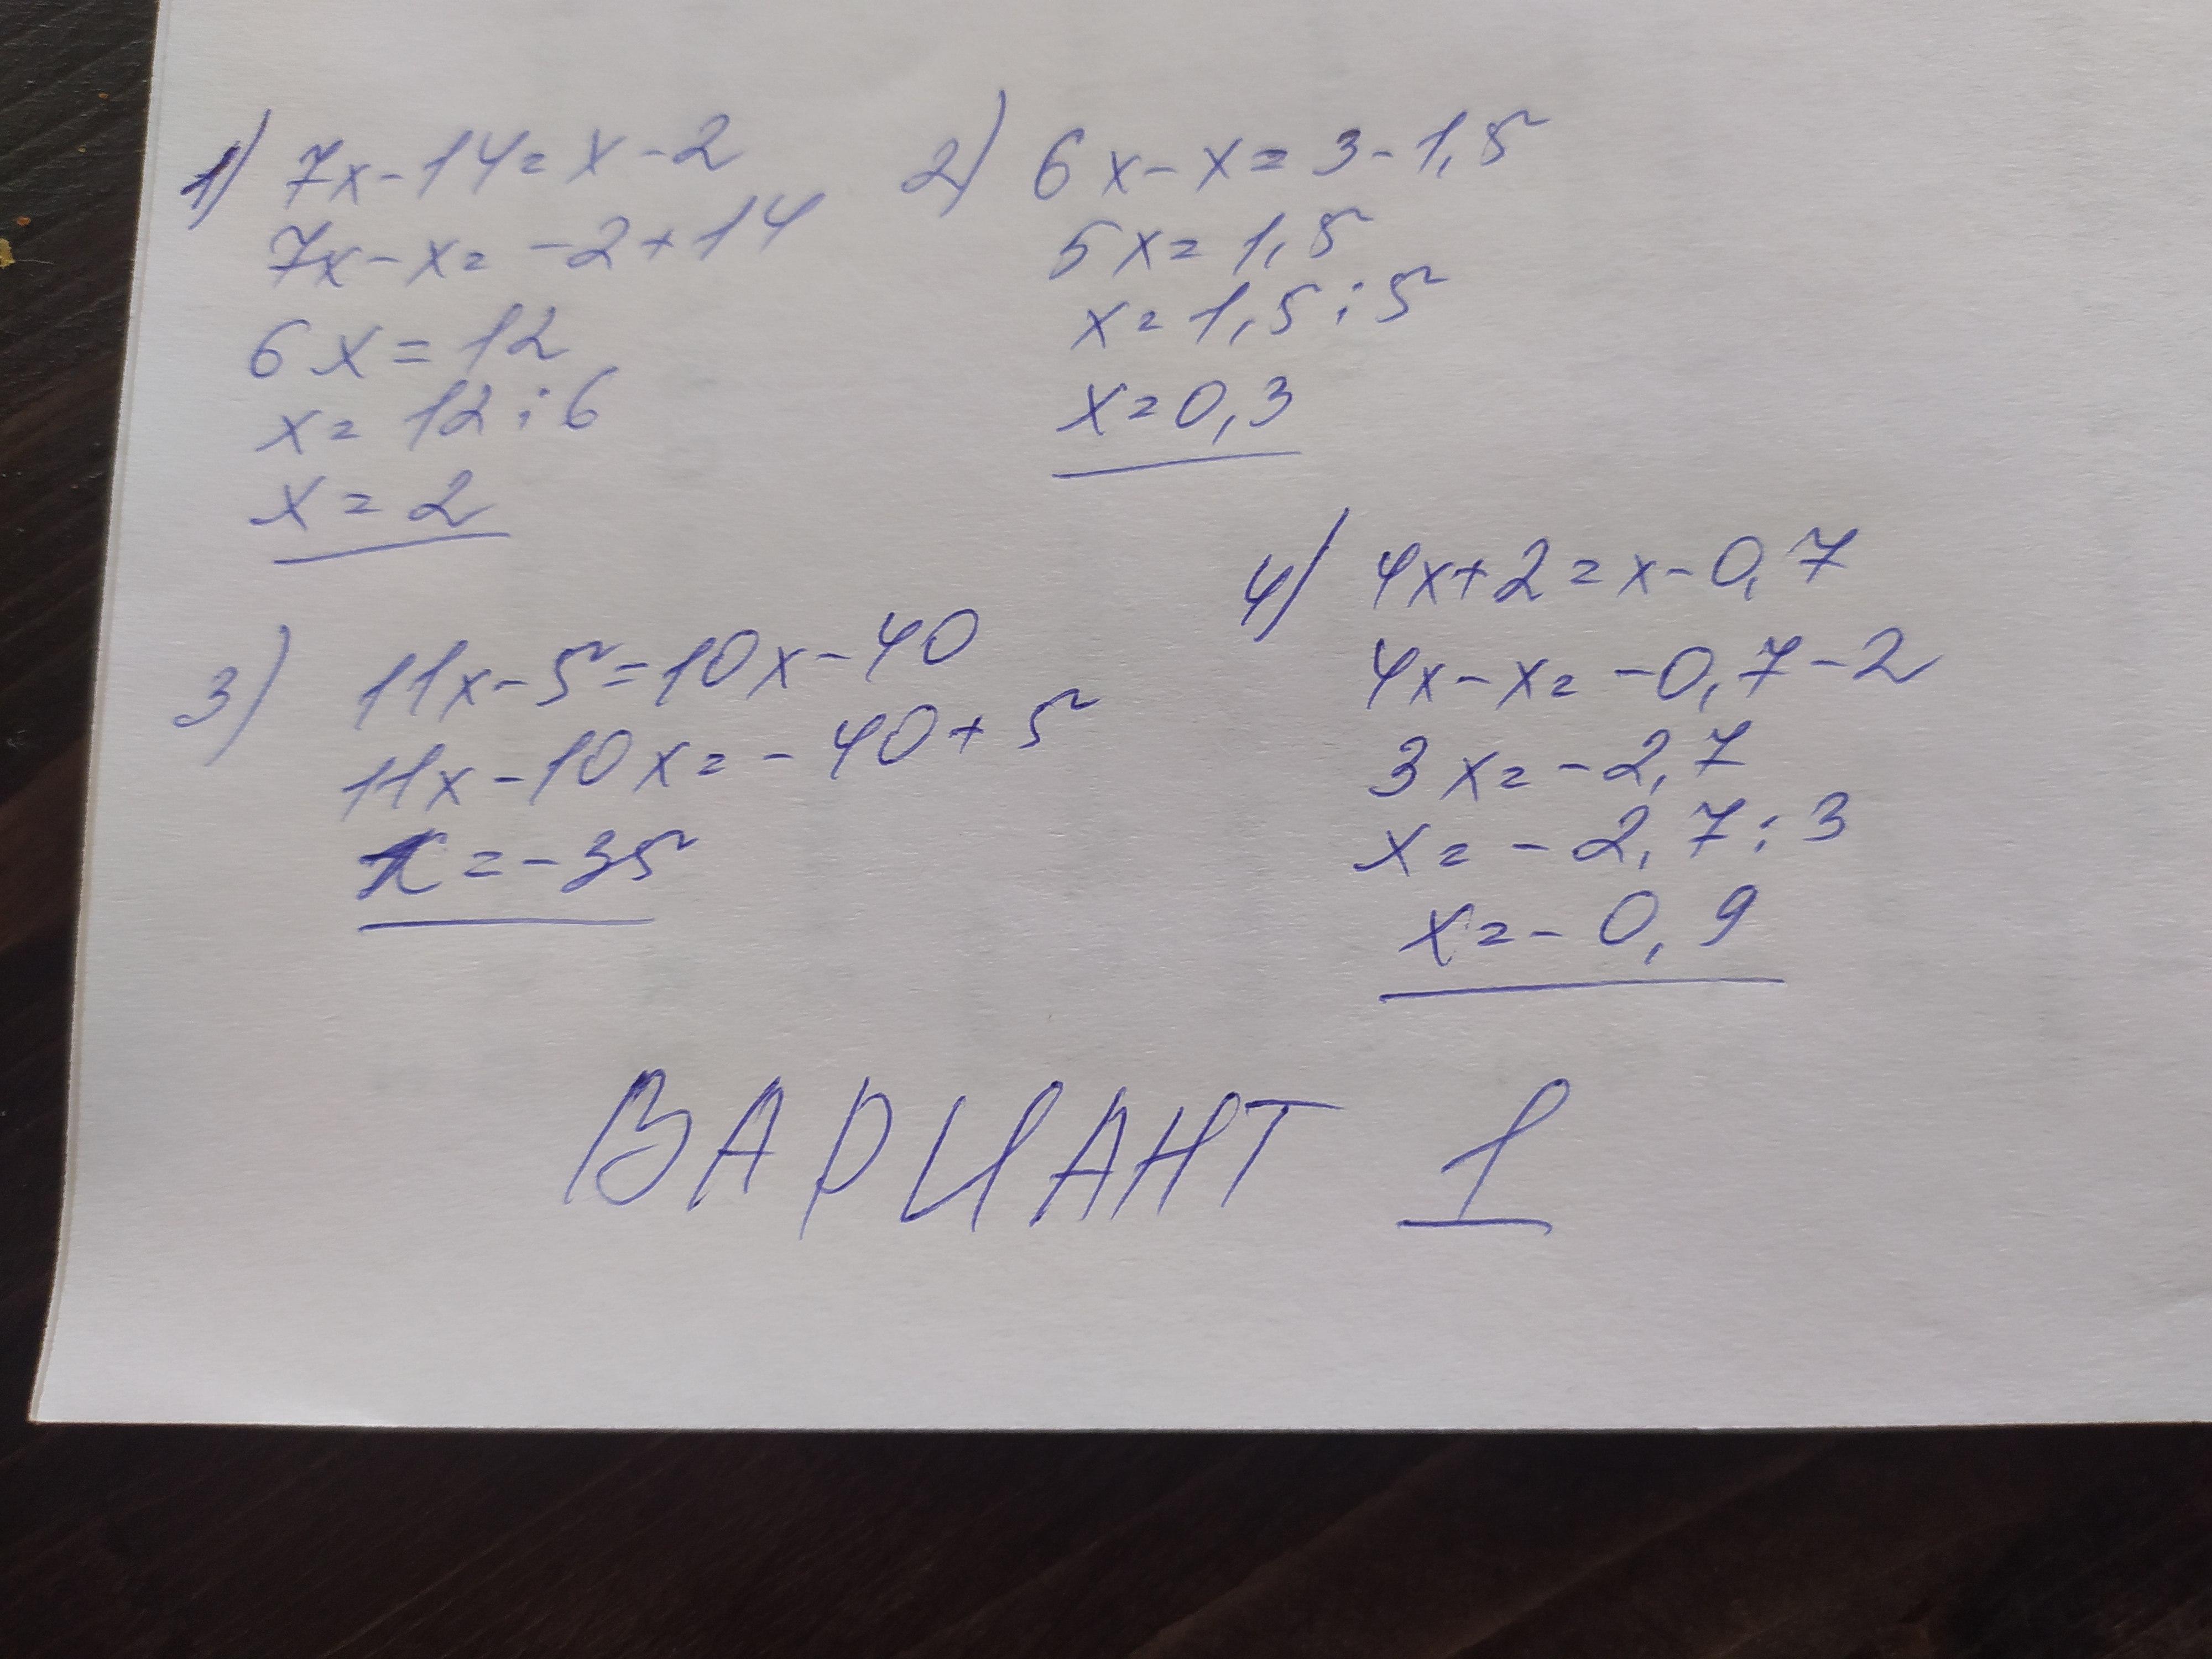 1) 7x-14=x-2
7x-x=-2+14
6x=12
x=12:6
x=2
2) 6x-x=3-1,5
5x=1,5
x=1,5:5
x=0,3
3) 11x-5=10x-40
11x-10x=-40+5
x=-35
4) 4x+2=x-0,7
4x-x=-0,7-2
3x=-2,7
x=-2,7:3
x=-0,9
ВАРИАНТ 1